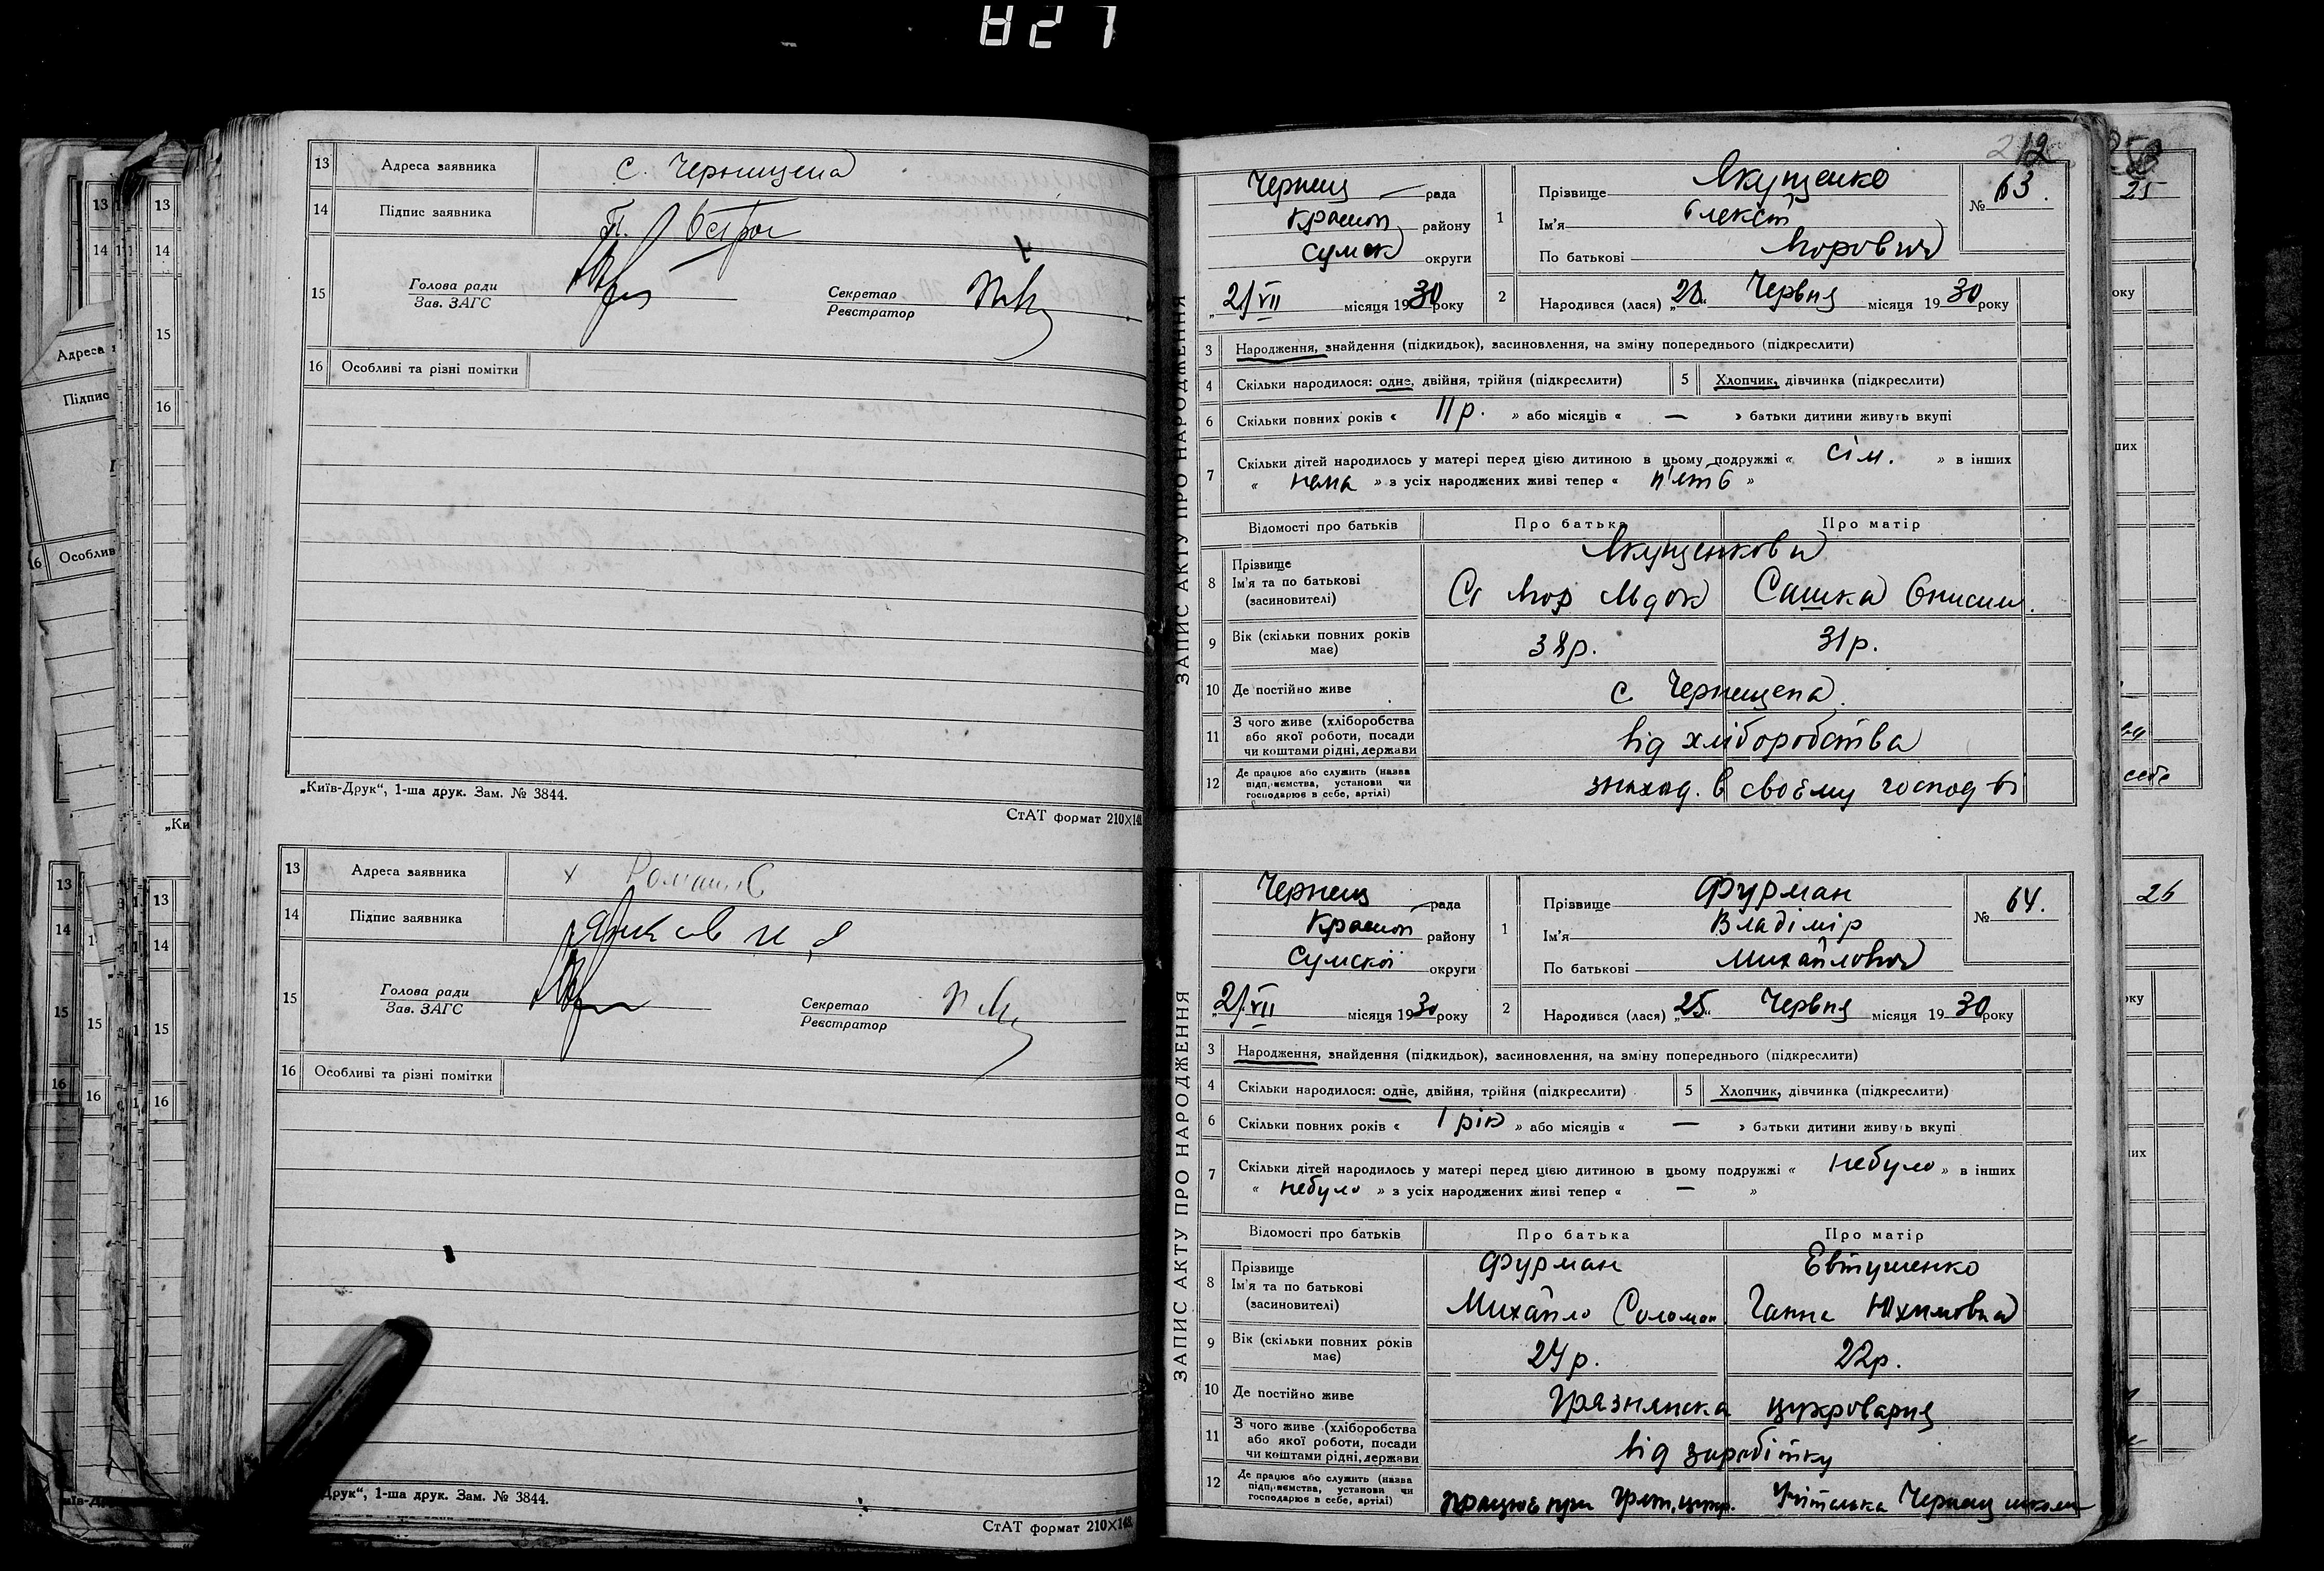 827
13 Адреса заявника с. Чернищена
14 Підпис заявника П. Остро
15 Голова ради
Зав. ЗАГС
Секретар
Реєстратор
16 Особливі та різні помітки
„Київ-Друк“, 1-ша друк. Зам. № 3844.
СтАТ формат 210×148
13 Адреса заявника х
14 Підпис заявника
15 Голова ради
Зав. ЗАГС
Секретар
Реєстратор
16 Особливі та різні помітки
Друк“, 1-ша друк. Зам. № 3844.
СтАТ формат 210×148
212
ЗАПИС АКТУ ПРО НАРОДЖЕННЯ
Чернещ рада
Красноп району
Сумск округи
„21/VII місяця 1930 року
1 Прізвище Якущенко
Ім'я Олексій
По батькові
№ 63.
2 Народився (лася) „ Червня місяця 1930 року
3 Народження, знайдення (підкидьок), засиновлення, на зміну попереднього (підкреслити)
4 Скільки народилося: одне, двійня, трійня (підкреслити) 5 Хлопчик, дівчинка (підкреслити)
6 Скільки повних років « 11 р. » або місяців « — » батьки дитини живуть вкупі
7 Скільки дітей народилось у матері перед цією дитиною в цьому подружжі « сім. » в інших
« нема » з усіх народжених живі тепер « п'ять »
Відомості про батьків Про батька Про матір
8 Прізвище
Ім'я та по батькові
(засиновителі)
Якущенкови
Сашка Онисим.
9 Вік (скільки повних років має) 38 р. 31 р.
10 Де постійно живе с. Чернещена
11 З чого живе (хліборобства або якої роботи, посади чи коштами рідні, держави від хліборобства
12 Де працює або служить (назва підприємства, установи чи господарює в себе, артілі) знаход. в своєму господ
ЗАПИС АКТУ ПРО НАРОДЖЕННЯ
Чернещ рада
Красноп району
Сумскої округи
„21/VII місяця 1930 року
1 Прізвище Фурман
Ім'я Владімір
По батькові Михайлович
№ 64.
2 Народився (лася) „25“ Червня місяця 1930 року
3 Народження, знайдення (підкидьок), засиновлення, на зміну попереднього (підкреслити)
4 Скільки народилося: одне, двійня, трійня (підкреслити) 5 Хлопчик, дівчинка (підкреслити)
6 Скільки повних років « 1 рік » або місяців « — » батьки дитини живуть вкупі
7 Скільки дітей народилось у матері перед цією дитиною в цьому подружжі « небуло » в інших
« небуло » з усіх народжених живі тепер « — »
Відомості про батьків Про батька Про матір
8 Прізвище
Ім'я та по батькові
(засиновителі)
Фурман Євтушенко
Михайло Соломон Ганна Юхимовна
9 Вік (скільки повних років має) 24 р. 22 р.
10 Де постійно живе Грязнянска цукроварня
11 З чого живе (хліборобства або якої роботи, посади чи коштами рідні, держави від заробітку
12 Де працює або служить (назва підприємства, установи чи господарює в себе, артілі) працює при цукр. Учителька Чернещ школи